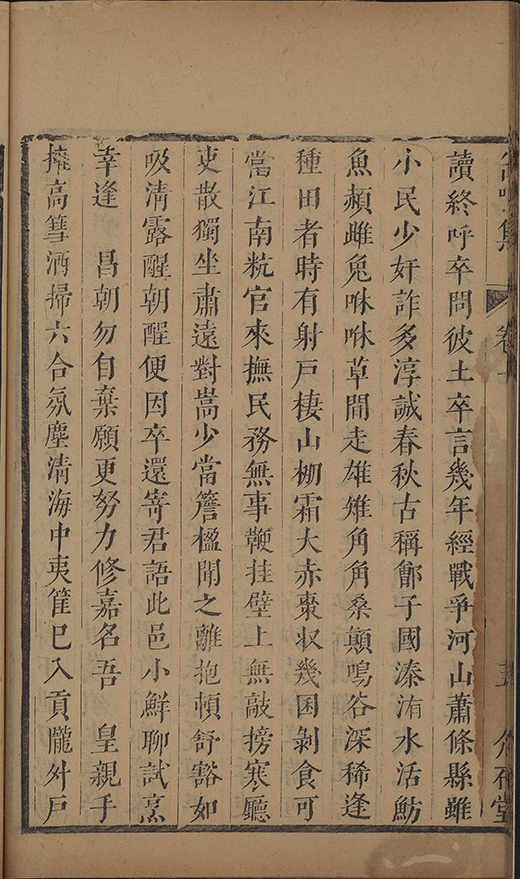 集 卷 五 堂
讀終呼卒問彼土卒言幾年經戰爭河山蕭條縣雖
小民少奸詐多淳誠春秋古稱鄶子國溱洧水活魴
魚頳雌兔咻咻草間走雄雉角角桑顛鳴谷深稀逢
種田者時有射戶棲山棚霜大赤棗収幾囷剝食可
當江南秔官來撫民務無事鞭挂壁上無敲搒寒廳
吏散獨坐肅遠對嵩少當簷楹聞之離抱頓舒豁如
吸清露醒朝酲便因卒還寄君語此邑小鮮聊試烹
幸逢 昌朝勿自棄願更努力修嘉名吾 皇親手
擁高篲洒掃六合氛塵清海中夷筐已入貢隴外戶